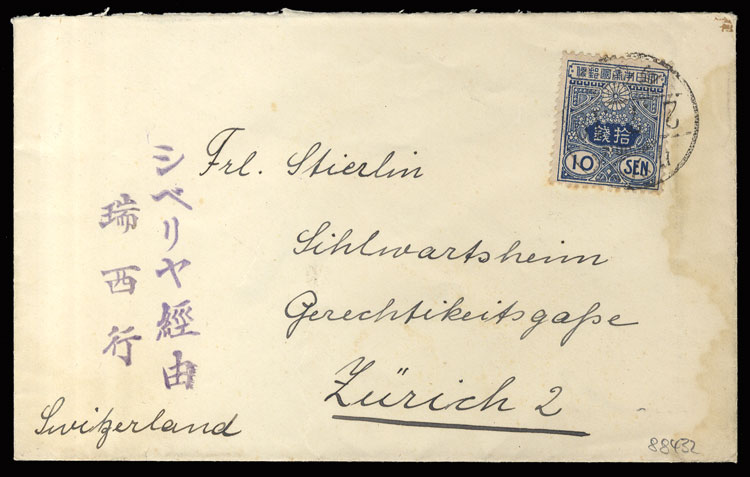 大日本帝國郵便
拾錢
10 SEN
シベリヤ經由
瑞西行
Frl. Stierlin
Sihlwartsheim
Gerechtikeitsgaße
Zürich 2
Switzerland
88432